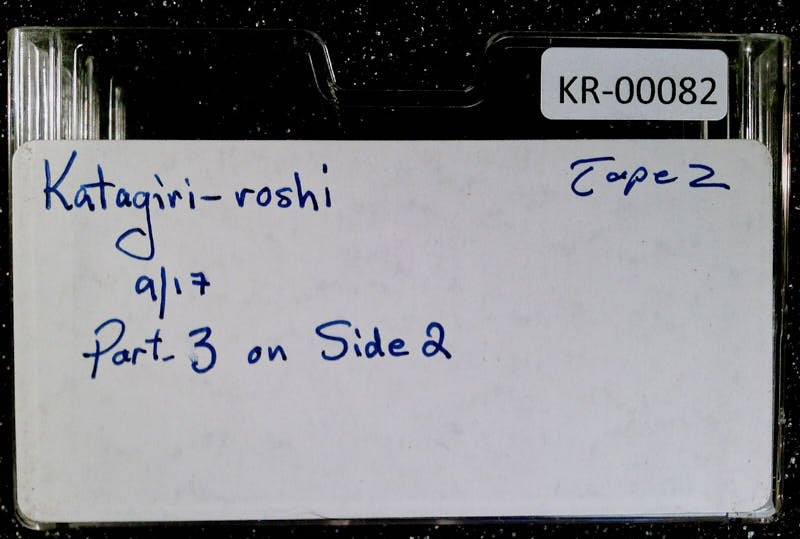 KR-00082
Katagiri-roshi Tape 2
9/17
Part-3 on Side 2